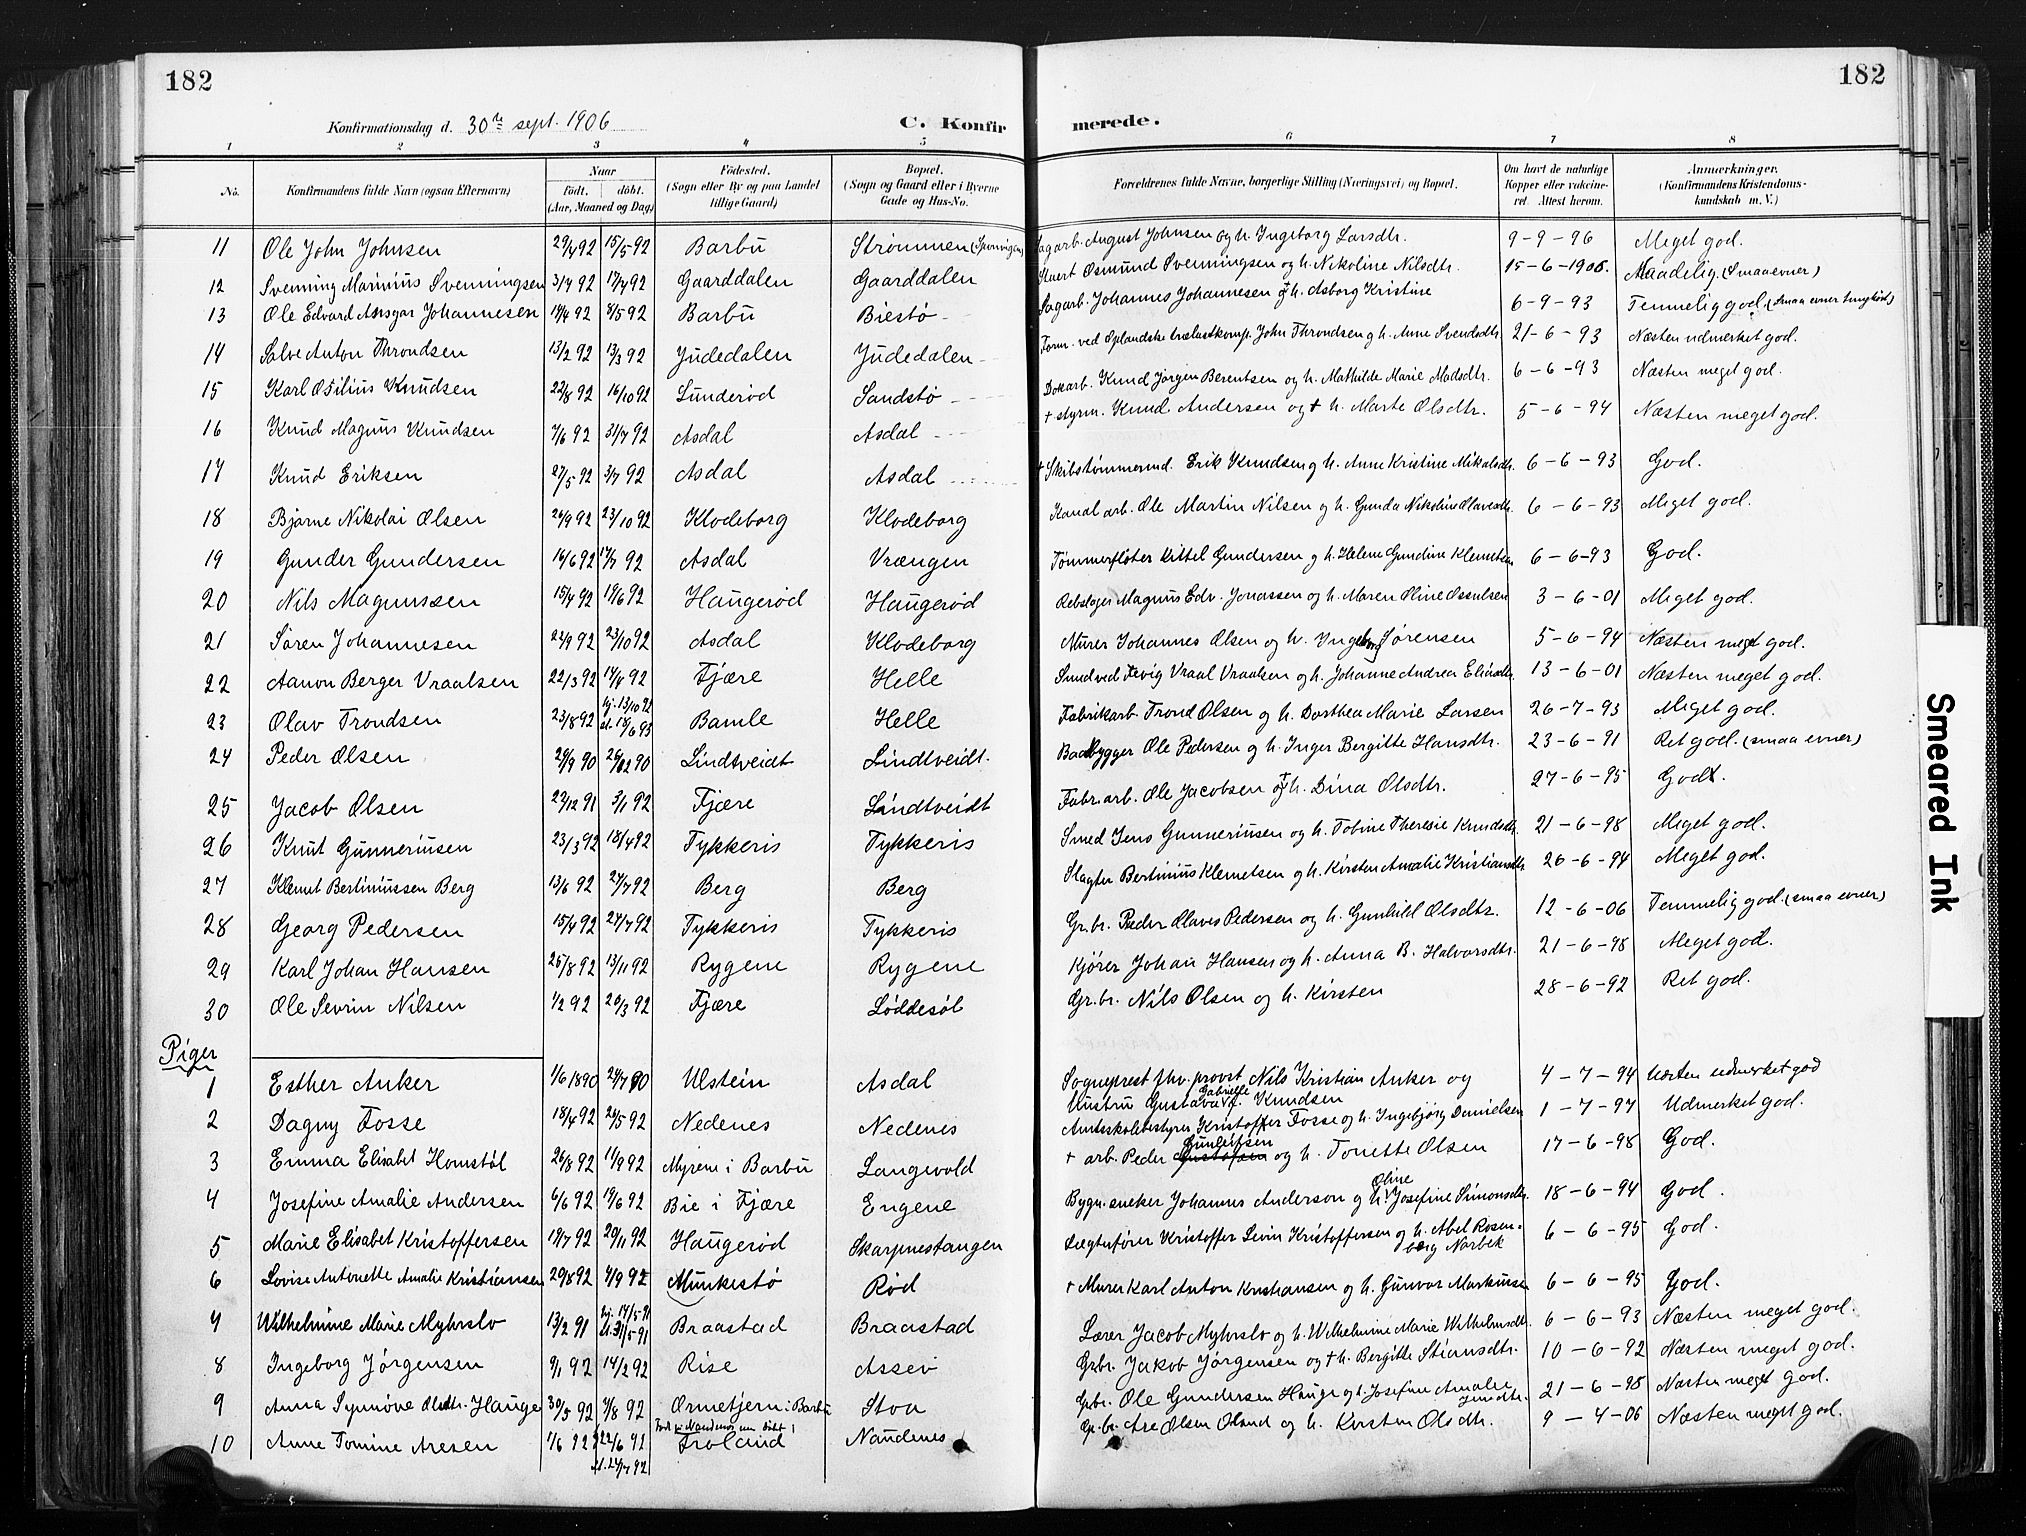 182
182
Konfirmationsdag d. 30te sept. 1906
C. Konfirmerede.
1 2 3 4 5 6 7 8
No.
Konfirmandens fulde Navn (ogsaa Efternavn)
Naar
født. døbt.
(Aar, Maaned og Dag)
Fødested.
(Sogn eller By og paa Landet
tillige Gaard)
Bopæl.
(Sogn og Gaard eller i Byerne
Gade og Hus-No.
Forældrenes fulde Navne, borgerlige Stilling (Næringsvei) og Bopæl.
Om havt de naturlige
Kopper eller vaccine-
ret. Attest herom.
Anmærkninger.
(Konfirmandens Kristendoms-
kundskab m. V.)
11 Ole John Johnsen 29/4 92 15/5 92 Barbu Strømmen (Sponvigen) Sagarb. August Johnsen og h. Ingeborg Larsdtr. 9-9-96 Meget god.
12 Svenning Marinius Svenningsen 3/4 92 17/4 92 Gaarddalen Gaarddalen Stuert Osmund Svenningsen og h. Nikoline Nilsdtr. 15-6-1906. Maadelig. (Smaa evner)
13 Ole Edvard Ansgar Johannesen 14/4 92 8/5 92 Barbu Biestø Sagarb. Johannes Johannesen og † h. Asborg Kristine 6-9-93 Temmelig god. (Smaa evner tunghørt)
14 Salve Anton Throndsen 13/2 92 13/3 92 Judedalen Judedalen Form. ved Oplandske trælastkomp. John Throndsen og h. Anne Svendsdtr. 21-6-93 Næsten udmerket god.
15 Karl Otilius Knudsen 22/8 92 16/10 92 Lunderød Sandstø Dokarb. Knud Jørgen Berentsen og h. Mathilde Marie Madsdtr. 6-6-93 Næsten meget god.
16 Knud Magnus Knudsen 7/6 92 31/7 92 Asdal Asdal † styrm. Knud Andersen og † h. Marte Olsdtr. 5-6-94 Næsten meget god.
17 Knud Eriksen 27/5 92 3/7 92 Asdal Asdal † Skibstømmermd. Erik Knudsen og h. Anne Kristine Mikalsdtr. 6-6-93 God.
18 Bjarne Nikolai Olsen 26/9 92 23/10 92 Klodeborg Klodeborg Kanal arb. Ole Martin Nilsen og h. Gunda Nikoline Olavesdtr. 6-6-93 Meget god.
19 Gunder Gundersen 16/6 92 17/7 92 Asdal Vrængen Tømmerfløter Kittel Gundersen og h. Helene Gundine Klemetsen 6-6-93 God.
20 Nils Magnussen 15/4 92 19/6 92 Haugerød Haugerød Rebslager Magnus Edv. Jonassen og h. Maren Oline Ossulsen 3-6-01 Meget god.
21 Søren Johannesen 22/9 92 23/10 92 Asdal Klodeborg Murer Johannes Olsen og h. Ingeborg Sørensen 5-6-94 Næsten meget god.
22 Aanon Berger Vraalsen 22/3 92 17/4 92 Fjære Helle Smed ved Fevig Vraal Vraalsen og h. Johanne Andrea Eliasdtr. 13-6-01 Næsten meget god.
23 Olav Trondsen 23/8 92 hj. 13/10 92 st. 18/6 93 Bamle Helle Fabrikarb. Trond Olsen og h. Dorthea Marie Larsen 26-7-93 Meget god.
24 Peder Olsen 29/9 90 26/12 90 Lindtveidt Lindtveidt. Baadbygger Ole Pedersen og h. Inger Bergitte Hansdtr. 23-6-91 Ret god. (smaa evner)
25 Jacob Olsen 27/12 91 3/1 92 Fjære Lindtveidt Fabr.arb. Ole Jacobsen og † h. Dina Olsdtr. 27-6-95 God.
26 Knut Gunneriusen 23/3 92 18/4 92 Tykkeris Tykkeris Smed Jens Gunneriusen og h. Tobine Theresie Knudsdtr. 21-6-98 Meget god.
27 Klemet Bertiniussen Berg 13/6 92 27/7 92 Berg Berg Slagter Bertinius Klemetsen og h. Kirsten Amalie Kristiansdtr. 26-6-94 Meget god.
28 Georg Pedersen 15/4 92 24/7 92 Tykkeris Tykkeris Gr.br. Peder Olaves Pedersen og h. Gunhild Olsdtr. 12-6-06 Temmelig god. (smaa evner)
29 Karl Johan Hansen 25/8 92 13/11 92 Rygene Rygene Kjører Johan Hansen og h. Anna B. Halvorsdtr. 21-6-98 Meget god.
30 Ole Sevrin Nilsen 1/2 92 20/3 92 Fjære Løddesøl Gr.br. Nils Olsen og h. Kirsten 28-6-92 Ret god.
Piger
1 Esther Anker 1/6 1890 24/7 90 Ulstein Asdal Sogneprest fhv. provst Nils Kristian Anker og Hustru Gustava Gabrielle f. Knudsen 4-7-94 Næsten udmerket god
2 Dagny Fosse 18/4 92 26/5 92 Nedenes Nedenes Amtsskolebestyrer Kristoffer Fosse og h. Ingebjørg Danielsen 1-7-97 Udmerket god.
3 Emma Elisabet Homstøl 26/8 92 11/9 92 Myrene i Barbu Langevold † arb. Peder Gunleiksen og h. Tonette Olsen 17-6-98 God.
4 Josefine Amalie Andersen 6/6 92 19/6 92 Bie i Fjære Engene Bygn.sneker Johannes Anderson og h. Oline Josefine Simonsdtr. 18-6-94 God.
5 Marie Elisabet Kristoffersen 19/7 92 20/11 92 Haugerød Skarpnestangen Lægterfører Kristoffer Sevin Kristoffersen og h. Abel Rosenberg Norbek 6-6-95 God.
6 Lovise Antonette Amalie Kristiansen 29/8 92 4/9 92 Munkestø Rød † Murer Karl Anton Kristiansen og h. Gunvor Markusse 6-6-95 God.
7 Wilhelmine Marie Myhrslo 13/2 91 hj. 17/5 91 st. 31/5 91 Braastad Braastad Lærer Jacob Myhrslo og h. Wilhelmine Marie Wilhelmsdtr. 6-6-93 Næsten meget god.
8 Ingeborg Jørgensen 9/1 92 14/2 92 Rise Assev Grbr. Jakob Jørgensen og † h. Bergitte Stiansdtr. 10-6-92 Næsten meget god.
9 Anna Synnøve Olsdtr. Hauge 30/5 92 7/8 92 Ørnetjern i Barbu Stoa Grbr. Ole Gundersen Hauge og h. Josefine Amalie Jensdtr. 21-6-98 Næsten meget god.
10 Anne Tomine Aresen 1/6 92 22/6 92 st. 24/7 92 Født i Nandenes men døbt i Froland Naudenes Gr.br. Are Olsen Oland og h. Kirsten Olsdtr. 9-4-06 Næsten meget god.
Smeared Ink